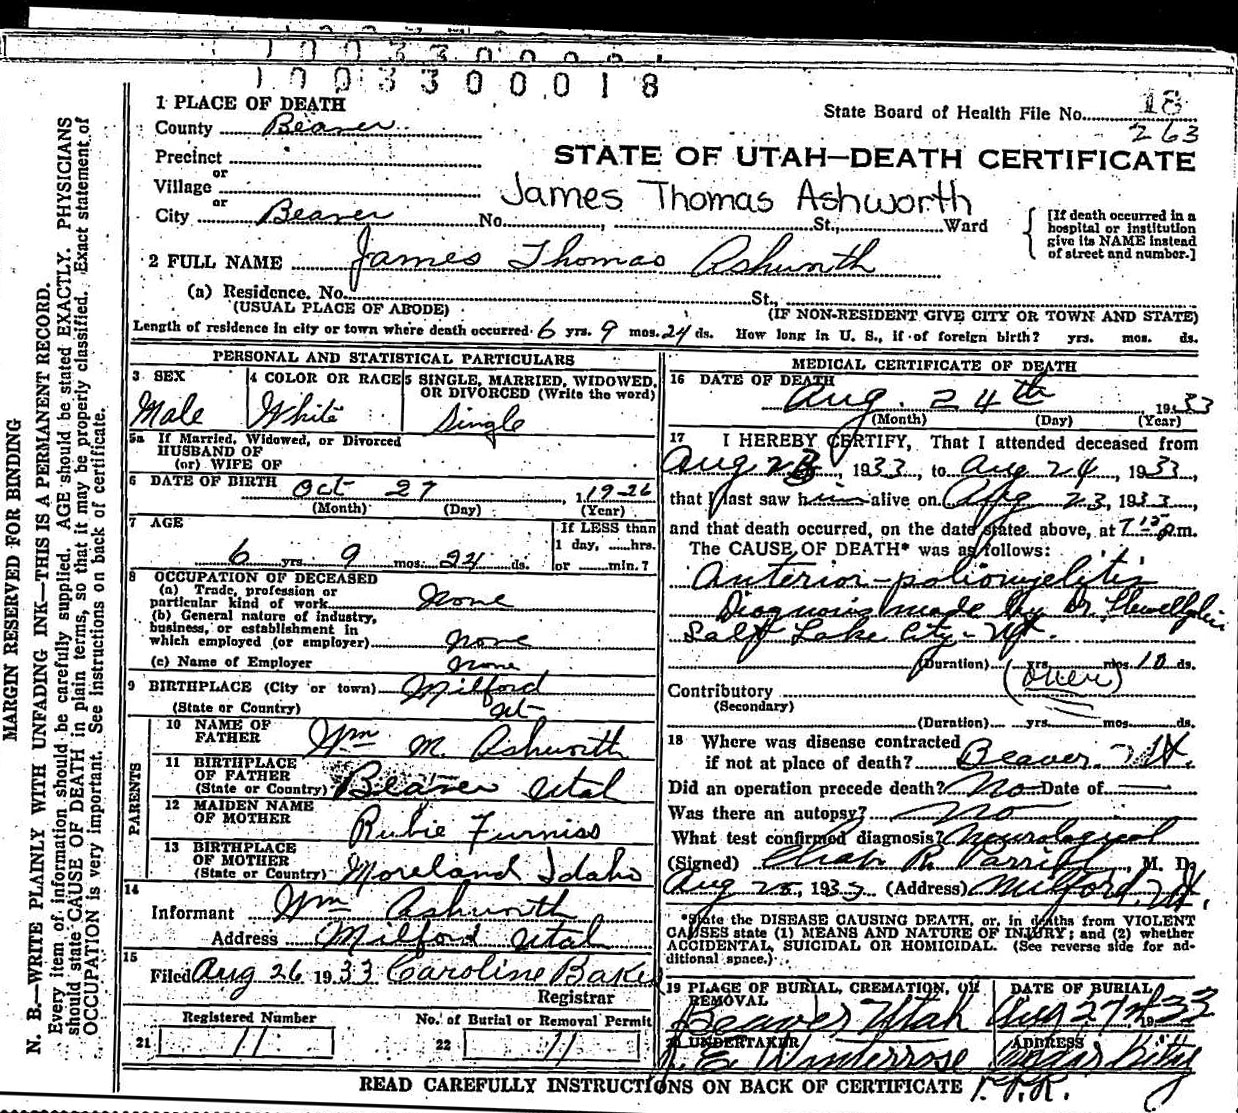 1003300018
1 PLACE OF DEATH
State Board of Health File No. 18
263
County Beaver
STATE OF UTAH—DEATH CERTIFICATE
Precinct
or
Village
or
James Thomas Ashworth
City Beaver No. , St., Ward
[If death occurred in a hospital or institution give its NAME instead of street and number.]
2 FULL NAME James Thomas Ashworth
(a) Residence. No. St.,
(USUAL PLACE OF ABODE) (IF NON-RESIDENT GIVE CITY OR TOWN AND STATE)
Length of residence in city or town where death occurred 6 yrs. 9 mos. 24 ds. How long in U. S., if of foreign birth? yrs. mos. ds.
PERSONAL AND STATISTICAL PARTICULARS
3 SEX
Male
4 COLOR OR RACE
White
5 SINGLE, MARRIED, WIDOWED, OR DIVORCED (Write the word)
Single
5a If Married, Widowed, or Divorced
HUSBAND OF
(or) WIFE OF
6 DATE OF BIRTH Oct 27, 1926
(Month) (Day) (Year)
7 AGE
6 yrs. 9 mos. 24 ds.
If LESS than
1 day, hrs.
or min.?
8 OCCUPATION OF DECEASED
(a) Trade, profession or
particular kind of work None
(b) General nature of industry,
business, or establishment in
which employed (or employer) None
(c) Name of Employer None
9 BIRTHPLACE (City or town) Milford
(State or Country) Ut
PARENTS
10 NAME OF
FATHER Wm M. Ashworth
11 BIRTHPLACE
OF FATHER
(State or Country) Beaver Utah
12 MAIDEN NAME
OF MOTHER Rubie Furniss
13 BIRTHPLACE
OF MOTHER
(State or Country) Moreland Idaho
14
Informant Wm Ashworth
Address Milford Utah
15
Filed Aug 26 1933 Caroline Baker
Registrar
Registered Number No. of Burial or Removal Permit
21 11 22 11
MEDICAL CERTIFICATE OF DEATH
16 DATE OF DEATH
Aug. 24th 1933
(Month) (Day) (Year)
17 I HEREBY CERTIFY, That I attended deceased from
Aug 23, 1933, to Aug 24, 1933,
that I last saw him alive on Aug 23, 1933,
and that death occurred, on the date stated above, at 7 15 p.m.
The CAUSE OF DEATH* was as follows:
Anterior-poliomyelitis
Diagnosis made by Dr. Llewellyn
Salt Lake City - Ut.
(Duration) yrs. mos. 10 ds.
(over)
Contributory
(Secondary)
(Duration) yrs. mos. ds.
18 Where was disease contracted
if not at place of death? Beaver, Ut.
Did an operation precede death? No Date of
Was there an autopsy? No
What test confirmed diagnosis? Neurological
(Signed) R. , M. D.
Aug 25, 1933 (Address) Milford, Ut.
*State the DISEASE CAUSING DEATH, or, in deaths from VIOLENT
CAUSES state (1) MEANS AND NATURE OF INJURY; and (2) whether
ACCIDENTAL, SUICIDAL OR HOMICIDAL. (See reverse side for ad-
ditional space.)
19 PLACE OF BURIAL, CREMATION, OR
REMOVAL
Beaver Utah
DATE OF BURIAL
Aug 27th, 1933
20 UNDERTAKER
E. Winterrose
ADDRESS
Cedar City
READ CAREFULLY INSTRUCTIONS ON BACK OF CERTIFICATE
MARGIN RESERVED FOR BINDING
N. B.—WRITE PLAINLY WITH UNFADING INK—THIS IS A PERMANENT RECORD.
Every item of information should be carefully supplied. AGE should be stated EXACTLY. PHYSICIANS
should state CAUSE OF DEATH in plain terms, so that it may be properly classified. Exact statement of
OCCUPATION is very important. See instructions on back of certificate.